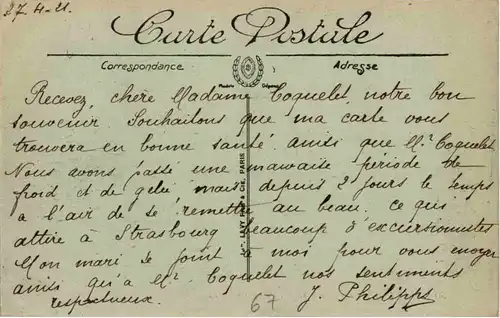 27.4-21.
Carte Postale
Correspondance
Adresse
Recevez, chère Madame Coquelet, notre bon
souvenir Souhaitons que ma carte vous
trouvera en bonne santé ainsi que Mr Coquelet
Nous avons passé une mauvaise periode de
froid et de gelée mais depuis 2 jours le temps
a l'air de se remettre au beau. ce qui
attire à Strasbourg beaucoup d'excursionnistes
Mon mari se joint à moi pour vous envoyer
ainsi qu'a Mr Coquelet nos sentiments
respectueux.
J. Philipps
67
LEVY FILS & Cie, PARIS